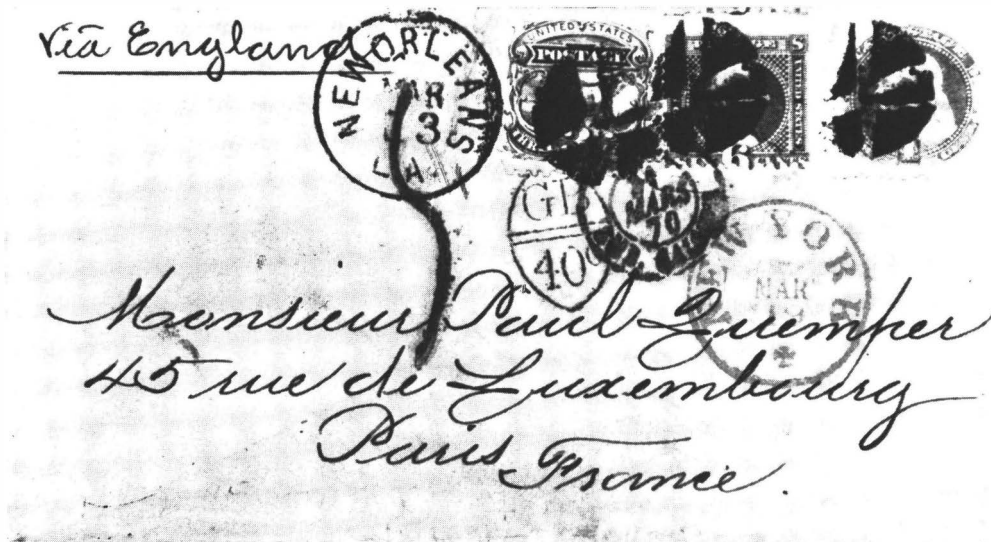 Via England
NEW ORLEANS
MAR
3
LA
UNITED STATES
POSTAGE
GB
40c
MARS
70
NEW YORK
MAR
Monsieur Paul Quemper
45 rue de Luxembourg
Paris
France.